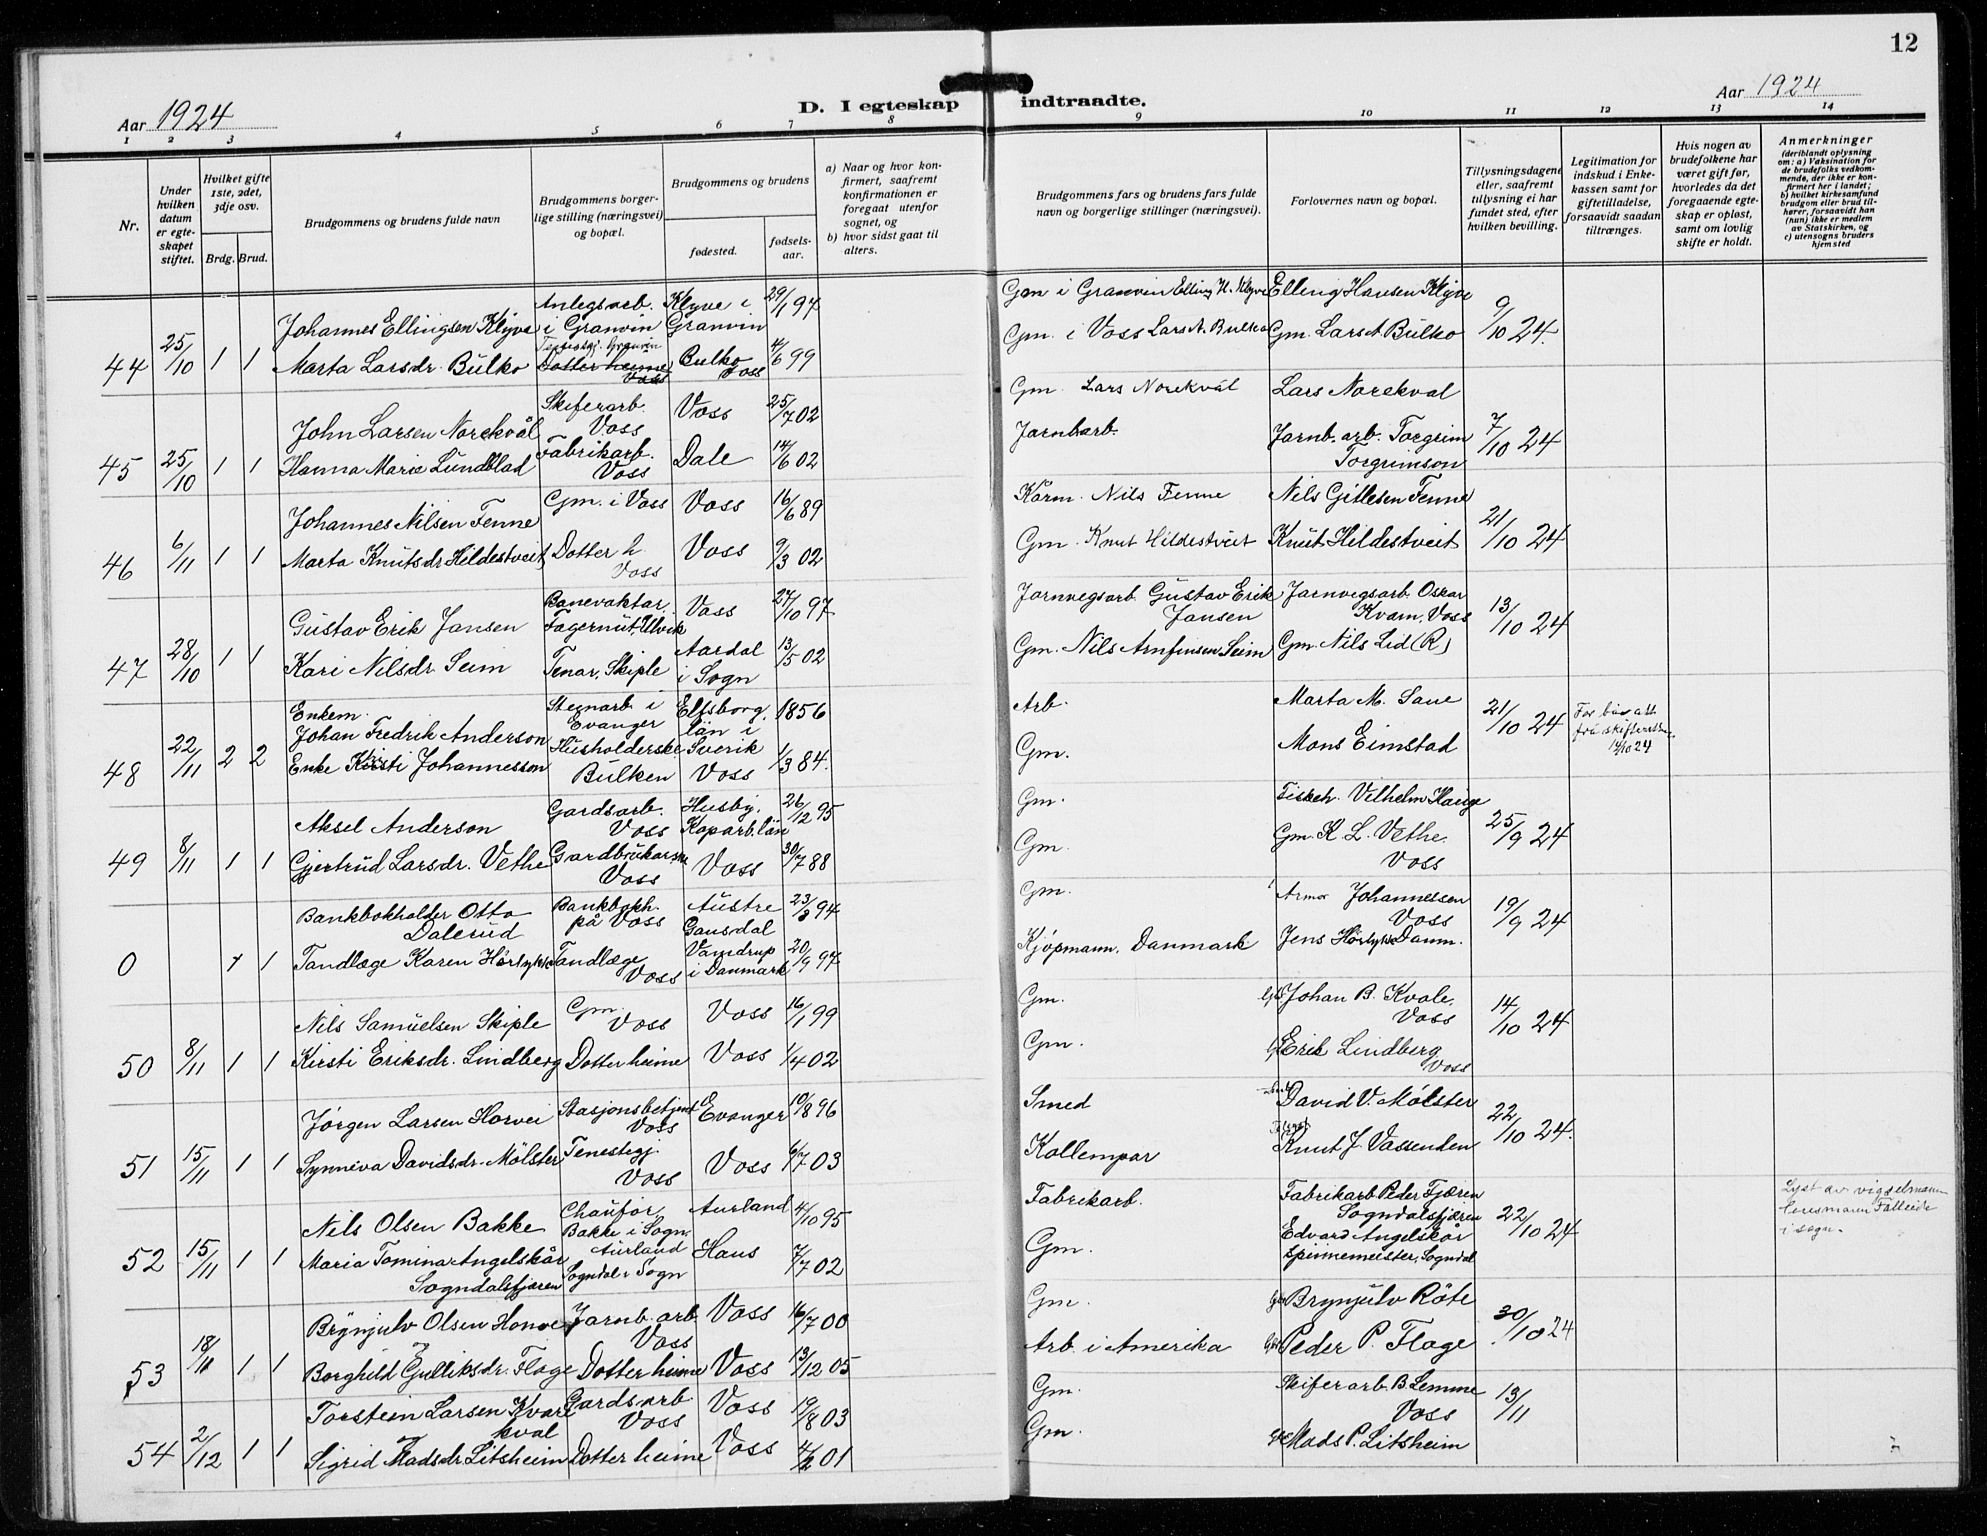 12
Aar 1924
D. I egteskap indtraadte.
Aar 1924
1 2 3 4 5 6 7 8 9 10 11 12 13 14
Nr.
Under hvilken datum er egteskapet stiftet.
Hvilket gifte 1ste, 2det, 3dje osv.
Brdg. Brud.
Brudgommens og brudens fulde navn
Brudgommens borgerlige stilling (næringsvei) og bopæl.
Brudgommens og brudens
fødested.
fødselsaar.
a) Naar og hvor konfirmert, saafremt konfirmationen er foregaat utenfor sognet, og
b) hvor sidst gaat til alters.
Brudgommens fars og brudens fars fulde navn og borgerlige stillinger (næringsvei).
Forlovernes navn og bopæl.
Tillysningsdagene eller, saafremt tillysning ei har fundet sted, efter hvilken bevilling.
Legitimation for indskud i Enkekassen samt for giftetilladelse, forsaavidt saadan tiltrænges.
Hvis nogen av brudefolkene har været gift før, hvorledes da det foregaaende egteskap er opløst, samt om lovlig skifte er holdt.
Anmerkninger
(deriblandt oplysning om: a) Vaksination for de brudefolks vedkommende, der ikke er konfirmert her i landet; b) hvilket kirkesamfund brudgom eller brud tilhører, forsaavidt han (hun) ikke er medlem av Statskirken, og c) utensogns bruders hjemsted
44 25/10 1 1
Johannes Ellingsen Klyve Anlegsarb. i Granvin Klyve i Granvin 29/1 97 Gm i Granvin Elling H. Klyve Elling Hansen Klyve 9/10 24.
Marta Larsdr. Bulko Tenestgj. Granvin Dotter heime Voss Bulko Voss 4/6 99 Gm. i Voss Lars A. Bulko Gm. Lars A Bulko
45 25/10 1 1
John Larsen Norekvål Skiferarb. Voss Voss 25/7 02 Gm. Lars Norekvål Lars Norekval 7/10 24
Hanna Marie Lundblad Fabrikarb. Voss Dale 14/6 02 Jarnbarb. Jarnb. arb. Torgrim Torgrimson
46 6/11 1 1
Johannes Nilsen Fenne Gm. i Voss Voss 16/6 89 Kårm. Nils Fenne Nils Gitlesen Fenne 21/10 24
Marta Knutsdr Hildestveit Dotter h. Voss Voss 9/3 02 Gm. Knut Hildestveit Knut Hildestveit
47 28/10 1 1
Gustav Erik Jansen Banevaktar. Fagernut, Ulvik Voss 27/10 97 Jarnvegsarb Gustav Erik Jansen Jarnvegsarb Oskar Kvam, Voss 13/10 24
Kari Nilsdr. Seim Tenar, Skiple Aardal i Sogn 13/5 02 Gm. Nils Arnfinsen Seim Gm. Nils Lid (R)
48 22/11 2 2
Enkem. Johan Fredrik Anderson Steinarb i Evanger Elfsborg. län i Sverik 1856 Arb. Marta M. Saue 21/10 24
Enke Kirsti Johannesson Husholderske Bulken Voss 1/3 84. Gm. Mons Eimstad
frå skifteretten 14/10 24
49 8/11 1 1
Aksel Anderson Gardsarb. Voss Husby, Koparb. län 26/12 95 Gm. Fiskeh. Vilhelm Hauge 25/9 24
Gjertrud Larsdr. Vethe Gardbrukarske Voss Voss 30/7 88 Gm. Gm. K. L. Vethe. Voss
0 1 1
Bankbokholder Otto Dalerud Bankbokh. på Voss Austre Gausdal 23/3 94 Gm. Johannessen Voss 19/9 24
Tandlæge Karen Hørlykke Tandlæge Voss Vamdrup i Danmark 20/9 97 Kjøpmann, Danmark Jens Hørlykke Danm.
50 8/11 1 1
Nils Samuelsen Skiple Gm. Voss Voss 16/1 99 Gm. Johan B. Kvale, Voss 14/10 24
Kirsti Eriksdr. Lindberg Dotter heime Voss 1/4 02 Gm. Erik Lindberg Voss
51 15/11 1 1
Jørgen Larsen Horvei Stasjonsbetjent Voss Evanger 10/8 96 Smed David V. Mølster 22/10 24.
Synneva Davidsdr. Mølster Tenestegj. Voss Voss 6/7 03 Kollempar Knut J. Vassenden
52 15/11 1 1
Nils Olsen Bakke Chaufør, Bakke i Sogn. Aurland Aurland 4/10 95 Fabrikarb. Fabrikarb Peder Fjæren Sogndalsfjæren 22/10 24
Maria Tomina Angelskår Sogndalsfjæren Sogndal i Sogn Haus 7/7 02 Gm. Edvard Angelskår spinnemeister, Sogndal
Lyst av vigselmann lensmann Falleide i sogn.
53 18/10 1 1
Brynjulv Olsen Honve Jarnb. arb Voss Voss 16/7 00 Gm. Brynjulv Röte 30/10 24
Borghild Gulliksdr. Flage Dotter heime Voss 13/12 05 Arb. i Amerika Peder P. Flage
54 2/12 1 1
Torstein Larsen Kvarekval Gardsarb Voss Voss 19/8 03 Gm. Skiferarb. B Lemme Voss 13/11
Sigrid Madsdr. Litsheim Dotter heime Voss 4/2 01 Gm. Mads P. Litsheim